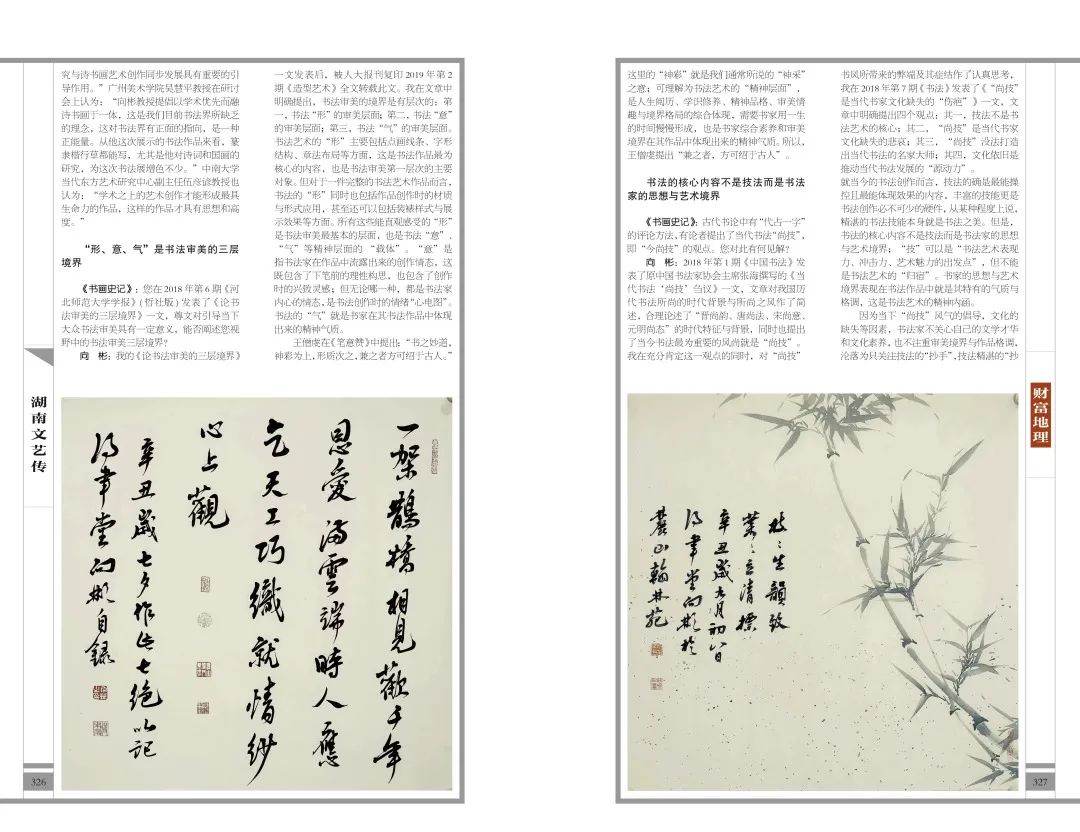 究与诗书画艺术创作同步发展具有重要的引
导作用。”广州美术学院吴慧平教授在研讨
会上认为：“向彬教授提倡以学术优先而融
诗书画于一体，这是我们目前书法界所缺乏
的理念，这对书法界有正面的指向，是一种
正能量。从他这次展示的书法作品来看，篆
隶楷行草都能写，尤其是他对诗词和国画的
研究，为这次书法展增色不少。”中南大学
当代东方艺术研究中心副主任伍彦谚教授也
认为：“学术之上的艺术创作才能形成最具
生命力的作品，这样的作品才具有思想和高
度。”
“形、意、气”是书法审美的三层
境界
《书画史记》：您在2018年第6期《河
北师范大学学报》（哲社版）发表了《论书
法审美的三层境界》一文，尊文对引导当下
大众书法审美具有一定意义，能否阐述您视
野中的书法审美三层境界？
向 彬：我的《论书法审美的三层境界》
一文发表后，被人大报刊复印2019年第2
期《造型艺术》全文转载此文。我在文章中
明确提出，书法审美的境界是有层次的：第
一，书法“形”的审美层面；第二，书法“意”
的审美层面；第三，书法“气”的审美层面。
书法艺术的“形”主要包括点画线条、字形
结构、章法布局等方面，这是书法作品最为
核心的内容，也是书法审美第一层次的主要
对象。但对于一件完整的书法艺术作品而言，
书法的“形”同时也包括作品创作时的材质
与形式应用，甚至还可以包括装裱样式与展
示效果等方面。所有这些能直观感受的“形”
是书法审美最基本的层面，也是书法“意”、
“气”等精神层面的“载体”。“意”是
指书法家在作品中流露出来的创作情态，这
既包含了下笔前的理性构思，也包含了创作
时的兴致灵感；但无论哪一种，都是书法家
内心的情志，是书法创作时的情绪“心电图”。
书法的“气”就是书家在其书法作品中体现
出来的精神气质。
王僧虔在《笔意赞》中提出：“书之妙道，
神彩为上，形质次之，兼之者方可绍于古人。”
湖南文艺传
一架鹊桥相见欢千年
恩爱满云端時人應
乞天工巧織就情紗
心上觀
辛丑歲七夕作此七绝以記
向彬自錄
326
这里的“神彩”就是我们通常所说的“神采”
之意；可理解为书法艺术的“精神层面”，
是人生阅历、学识修养、精神品格、审美情
趣与境界格局的综合体现，需要书家用一生
的时间慢慢形成，也是书家综合素养和审美
境界在其作品中体现出来的精神气质。所以，
王僧虔提出“兼之者，方可绍于古人”。
书法的核心内容不是技法而是书法
家的思想与艺术境界
《书画史记》：古代书论中有“代占一字”
的评论方法，有论者提出了当代书法“尚技”，
即“今尚技”的观点。您对此有何见解？
向 彬：2018年第1期《中国书法》发
表了原中国书法家协会主席张海撰写的《当
代书法‘尚技’刍议》一文，文章对我国历
代书法所尚的时代背景与所尚之风作了简
述，合理论述了“晋尚韵、唐尚法、宋尚意、
元明尚态”的时代特征与背景，同时也提出
了当今书法最为重要的风尚就是“尚技”。
我在充分肯定这一观点的同时，对“尚技”
书风所带来的弊端及其症结作了认真思考，
我在2018年第7期《书法》发表了《“尚技”
是当代书家文化缺失的“伤疤”》一文，文
章中明确提出四个观点；其一，技法不是书
法艺术的核心；其二，“尚技”是当代书家
文化缺失的悲哀；其三，“尚技”没法打造
出当代书法的名家大师；其四，文化依旧是
推动当代书法发展的“源动力”。
就当今的书法创作而言，技法的确是最能操
控且最能体现效果的内容，丰富的技能更是
书法创作必不可少的硬件，从某种程度上说，
精湛的书法技能本身就是书法之美。但是，
书法的核心内容不是技法而是书法家的思想
与艺术境界；“技”可以是“书法艺术表现
力、冲击力、艺术魅力的出发点”，但不能
是书法艺术的“归宿”。书家的思想与艺术
境界表现在书法作品中就是其特有的气质与
格调，这是书法艺术的精神内涵。
因为当下“尚技”风气的倡导，文化的
缺失等因素，书法家不关心自己的文学才华
和文化素养，也不注重审美境界与作品格调，
沦落为只关注技法的“抄手”，技法精湛的“抄
枝〻生韻致
葉〻立清標
辛丑歲九月初八日
向彬於
麓山翰林苑
财富地理
327